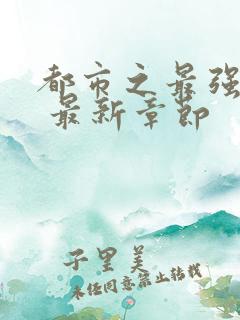 都市之最强
最新章节
子里美
未经同意禁止转载